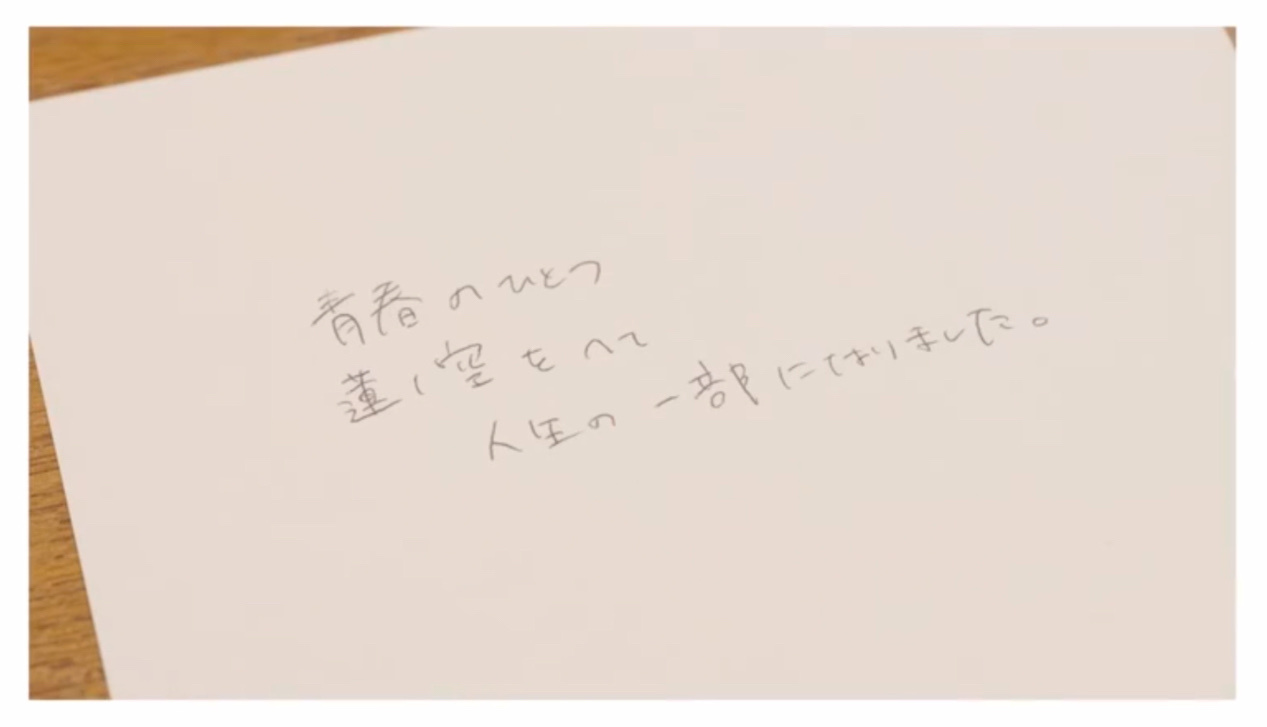 青春のひとつ
蓮ノ空をへて
人生の一部になりました。